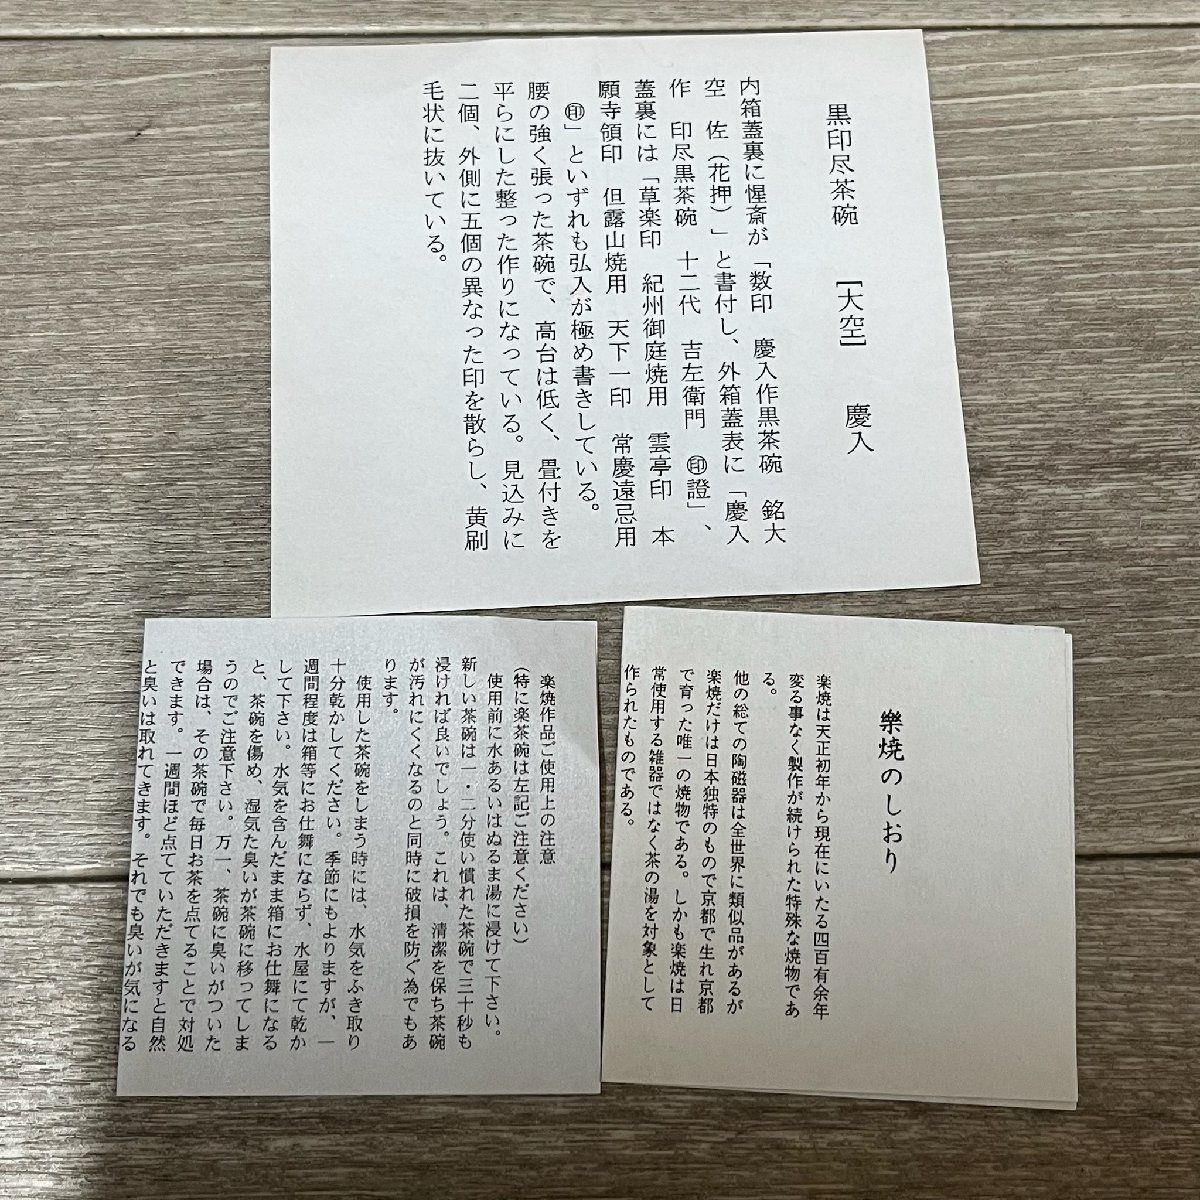 黒印尽茶碗　［大空］　慶入
内箱蓋裏に惺斎が「数印　慶入作黒茶碗　銘大
空　佐（花押）」と書付し、外箱蓋表に「慶入
作　印尽黒茶碗　十二代　吉左衛門　㊞證」、
蓋裏には「草楽印　紀州御庭焼用　雲亭印　本
願寺領印　但露山焼用　天下一印　常慶遠忌用
㊞」といずれも弘入が極め書きしている。
腰の強く張った茶碗で、高台は低く、畳付きを
平らにした整った作りになっている。見込みに
二個、外側に五個の異なった印を散らし、黄刷
毛状に抜いている。
樂焼のしおり
楽焼は天正初年から現在にいたる四百有余年
変る事なく製作が続けられた特殊な焼物であ
る。
他の総ての陶磁器は全世界に類似品があるが
楽焼だけは日本独特のもので京都で生れ京都
で育った唯一の焼物である。しかも楽焼は日
常使用する雑器ではなく茶の湯を対象として
作られたものである。
楽焼作品ご使用上の注意
（特に楽茶碗は左記ご注意ください）
使用前に水あるいはぬるま湯に浸けて下さい。
新しい茶碗は一・二分使い慣れた茶碗で三十秒も
浸ければ良いでしょう。これは、清潔を保ち茶碗
が汚れにくくなるのと同時に破損を防ぐ為でもあ
ります。
使用した茶碗をしまう時には、水気をふき取り
十分乾かしてください。季節にもよりますが、一
週間程度は箱等にお仕舞にならず、水屋にて乾か
して下さい。水気を含んだまま箱にお仕舞になる
と、茶碗を傷め、湿気た臭いが茶碗に移ってしま
うのでご注意下さい。万一、茶碗に臭いがついた
場合は、その茶碗で毎日お茶を点てることで対処
できます。一週間ほど点てていただきますと自然
と臭いは取れてきます。それでも臭いが気になる